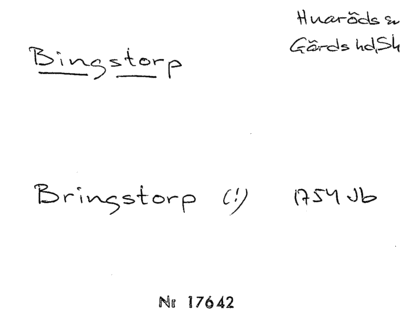 Huaröds sn
Gärds hd, Sk
Bingstorp
Bringstorp (!) 1754 Jb
Nr 17642